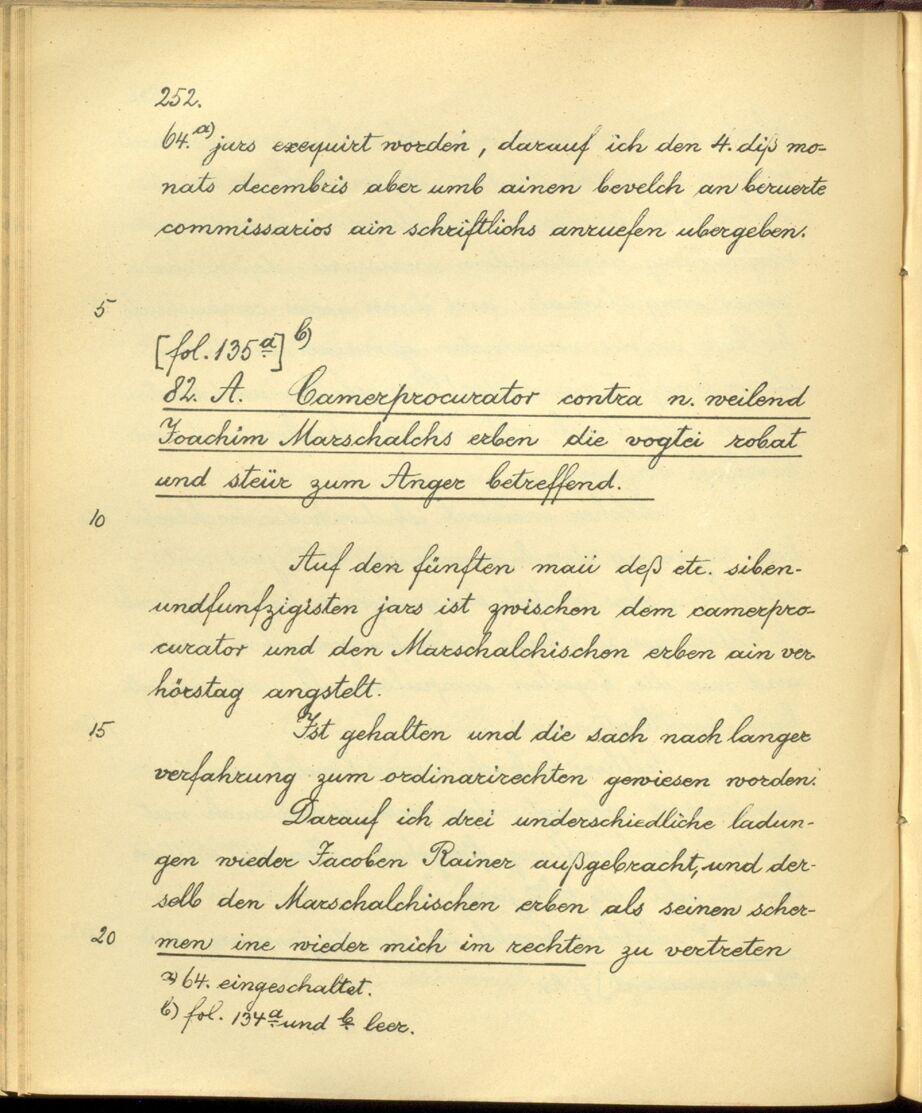 252.
64.a) jars exequirt worden, darauf ich den 4. diß mo-
nats decembris aber umb ainen bevelch an beruerte
commissarios ain schriftlichs anruefen ubergeben.
5
[fol. 135a] b)
82. A. Camerprocurator contra n. weilend
Joachim Marschalchs erben die vogtei robat
und steür zum Anger betreffend.
10
Auf den fünften maii deß etc. siben-
undfunfzigisten jars ist zwischen dem camerpro-
curator und den Marschalchischen erben ain ver-
hörstag angstelt.
15 Ist gehalten und die sach nach langer
verfahrung zum ordinarirechten gewiesen worden.
Darauf ich drei underschiedliche ladun-
gen wieder Jacoben Rainer außgebracht, und der-
selb den Marschalchischen erben als seinen scher-
20 men ine wieder mich im rechten zu vertreten
a) 64. eingeschaltet.
b) fol. 134a und b leer.